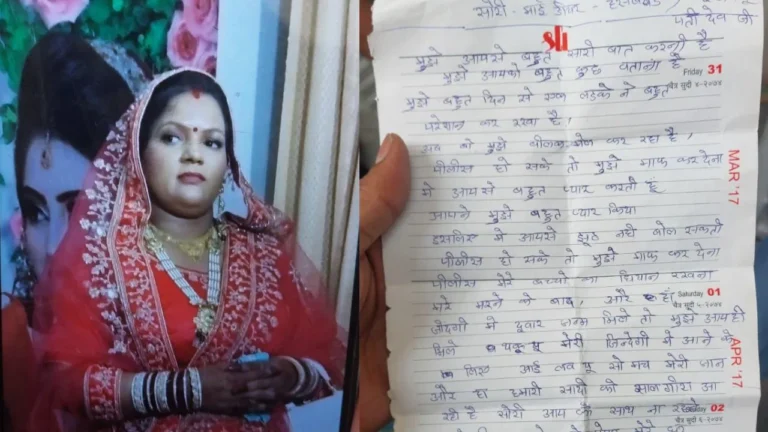 सॉरी - माई डियर - हसबेन्ड
पती देव जी
sri
मुझे आपसे बहुत सारी बात करनी है
मुझे आपको बहुत कुछ बताना है
Friday 31
चैत्र सुदी ४-२०७४
मुझे बहुत दिन से एक लड़के ने बहुत
परेशान कर रखा है,
अब वो मुझे बीलेक मेल कर रहा है,
पीलीस हो सके तो मुझे माफ कर देना
MAR '17
मे आपसे बहुत प्यार करती हूं
आपने मुझे बहुत प्यार किया
इसलिए मे आपसे झूठ नही बोल सकती
पीलीस हो सके तो मुझे माफ कर देना
पीलीस मेरे बच्चो का धियान रखना
Saturday 01
चैत्र सुदी ५-२०७४
मेरे मरने के बाद, और हां
जीदगी मे दुवार जन्म मिले तो मुझे आप ही
मिले थेकू यू मेरी जिन्देगी मे आने के
APR '17
लिए आई लव यू सो मच मेरी जान
और हा हमारी सादी की सालगीरा आ
रही है सोरी आप के साथ ना
02
चैत्र सुदी ६-२०७४